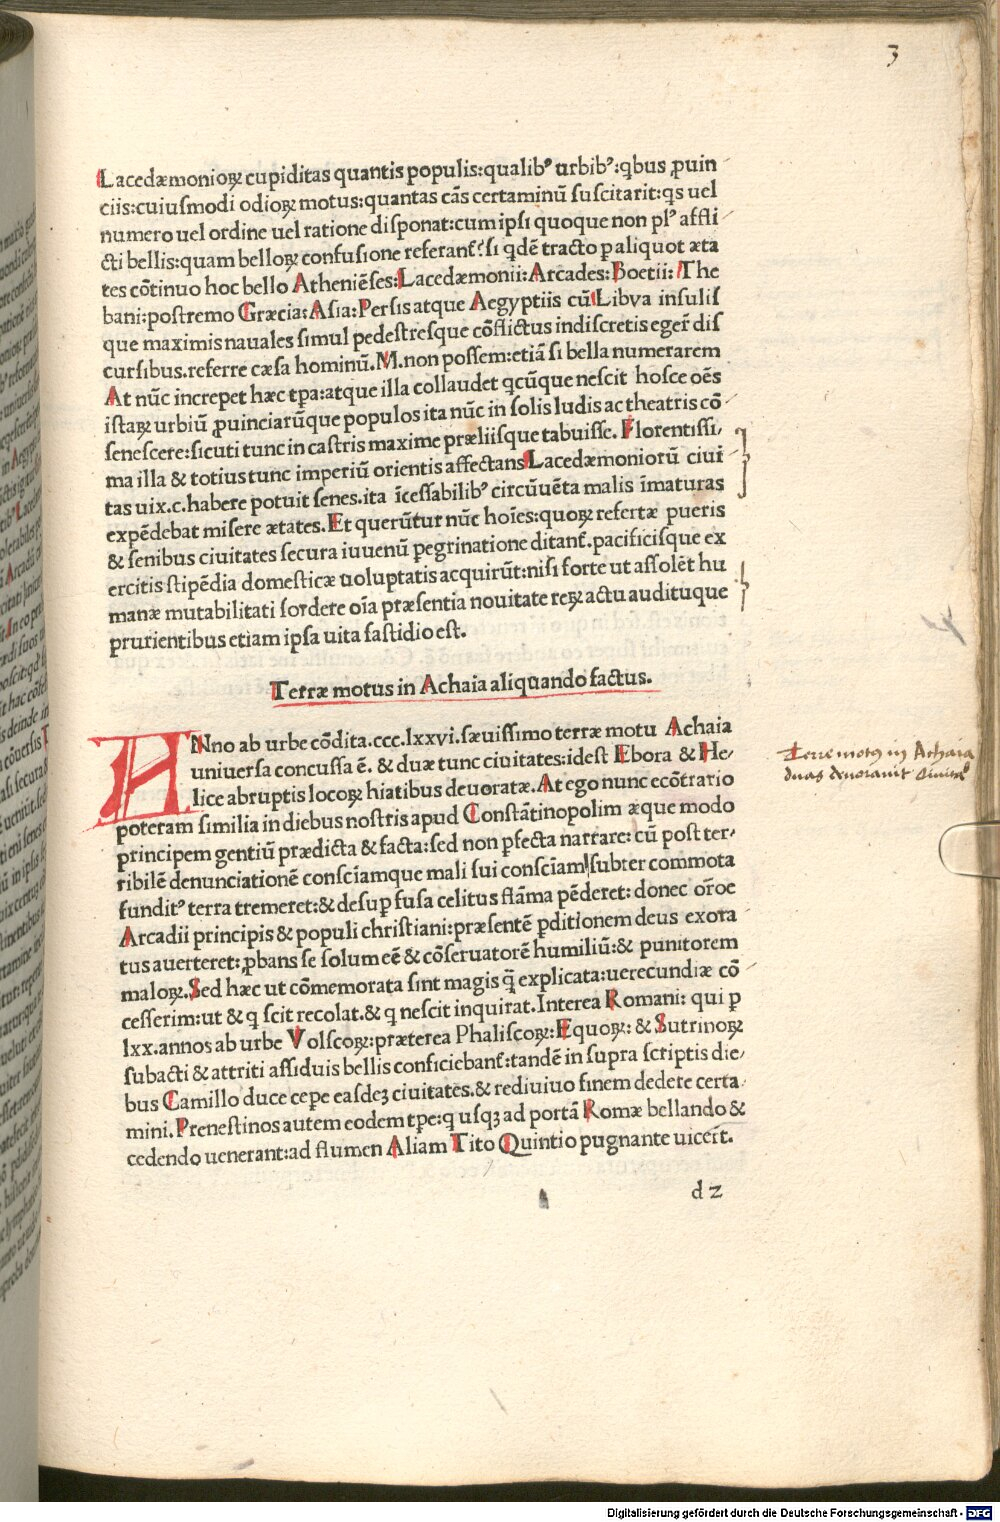 3
Lacedæmonioꝝ cupiditas quantis populis:qualibꝰ urbibꝰ:qbus ꝓuin
ciis:cuiusmodi odioꝝ motus:quantas cãs certaminũ suscitarit:qs uel
numero uel ordine uel ratione disponat:cum ipsi quoque non plꝰ affli
cti bellis:quam belloꝝ confusione referant̃:si qdẽ tracto p aliquot æta
tes cõtinuo hoc bello Atheniẽses:Lacedæmonii:Arcades:Boetii:The
bani:postremo Græcia:Asia:Persis atque Aegyptiis cũ Libya insulis
que maximis nauales simul pedestresque cõflictus indiscretis eger̃ dis
cursibus.referre cæsa hominũ.M.non possem:etiã si bella numerarem
At nũc increpet hæc tpa:atque illa collaudet qcũque nescit hosce oẽs
istaꝝ urbiũ ꝓuinciarũque populos ita nũc in solis ludis ac theatris cõ
senescere:sicuti tunc in castris maxime præliisque tabuisse. Florentissi
ma illa & totius tunc imperiũ orientis affectans Lacedæmoniorũ ciui
tas uix.c.habere potuit senes.ita ĩcessabilibꝰ circũuẽta malis ĩmaturas
expẽdebat misere ætates.Et querũtur nũc hoĩes:quoꝝ refertæ pueris
& senibus ciuitates secura iuuenũ pegrinatione ditant̃.pacificisque ex
ercitis stipẽdia domesticæ uoluptatis acquirũt:nisi forte ut assolẽt hu
manæ mutabilitati sordere oĩa præsentia nouitate reꝝ actu audituque
prurientibus etiam ipsa uita fastidio est.
Terræ motus in Achaia aliquando factus.
ANno ab urbe cõdita.ccc.lxxvi.sæuissimo terræ motu Achaia
uniuersa concussa ẽ. & duæ tunc ciuitates:idest Ebora & He
lice abruptis locoꝝ hiatibus deuoratæ.At ego nunc ecõtrario
poteram similia in diebus nostris apud Constãtinopolim æque modo
principem gentiũ prædicta & facta:sed non ꝑfecta narrare: cũ post ter
ribilẽ denunciationẽ consciamque mali sui consciam subter commota
funditꝰ terra tremeret:& desuꝑ fusa celitus flãma pẽderet: donec or̃oe
Arcadii principis & populi christiani:præsentẽ ꝑditionem deus exora
tus auerteret:ꝓbans se solum eẽ & cõseruatorẽ humiliũ:& punitorem
maloꝝ.Sed hæc ut cõmemorata sint magis q̃ explicata:uerecundiæ cõ
cesserim:ut & q scit recolat.& q nescit inquirat.Interea Romani: qui ꝑ
lxx.annos ab urbe Volscoꝝ:præterea Phaliscoꝝ:Equoꝝ: & Sutrinoꝝ
subacti & attriti assiduis bellis conficiebant̃:tandẽ in supra scriptis die
bus Camillo duce cepe easdeꝫ ciuitates.& rediuiuo finem dedere certa
mini.Prenestinos autem eodem tpe:q usqꝫ ad portã Romæ bellando &
cedendo uenerant:ad flumen Aliam Tito Quintio pugnante uicer̃t.
d 2
Terre motꝰ in Achaia
duas deuorauit Ciuitẽs
Digitalisierung gefördert durch die Deutsche Forschungsgemeinschaft - DFG